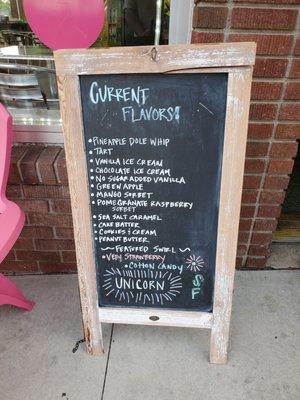 CURRENT
FLAVORS!
• PINEAPPLE DOLE WHIP
• TART
• VANILLA ICE CREAM
• CHOCOLATE ICE CREAM
• NO SUGAR ADDED VANILLA
• GREEN APPLE
• MANGO SORBET
• POMEGRANATE RASPBERRY
SORBET
• SEA SALT CARAMEL
• CAKE BATTER
• COOKIES & CREAM
• PEANUT BUTTER
~ FEATURED SWIRL ~
• VERY STRAWBERRY
• COTTON CANDY
UNICORN